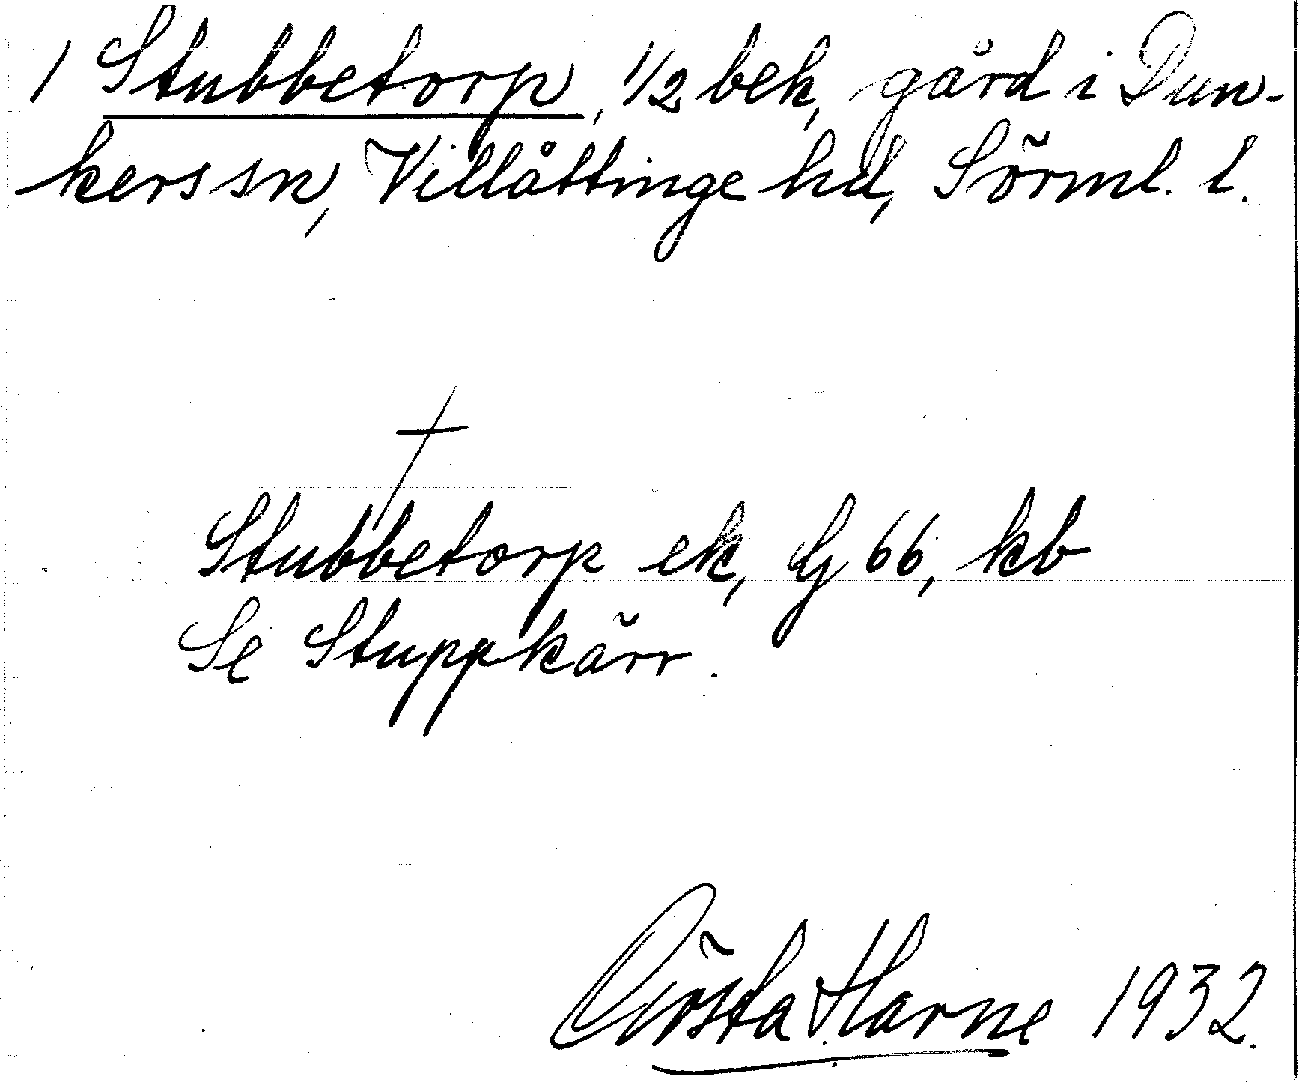 1 Stubbetorp, 1/2 bek, gård i Dun-
kers sn, Villåttinge hd, Sörml. l.
Stubbetorp ek, G 66, kb
Se Stuppkärr.
Gösta Harne 1932.